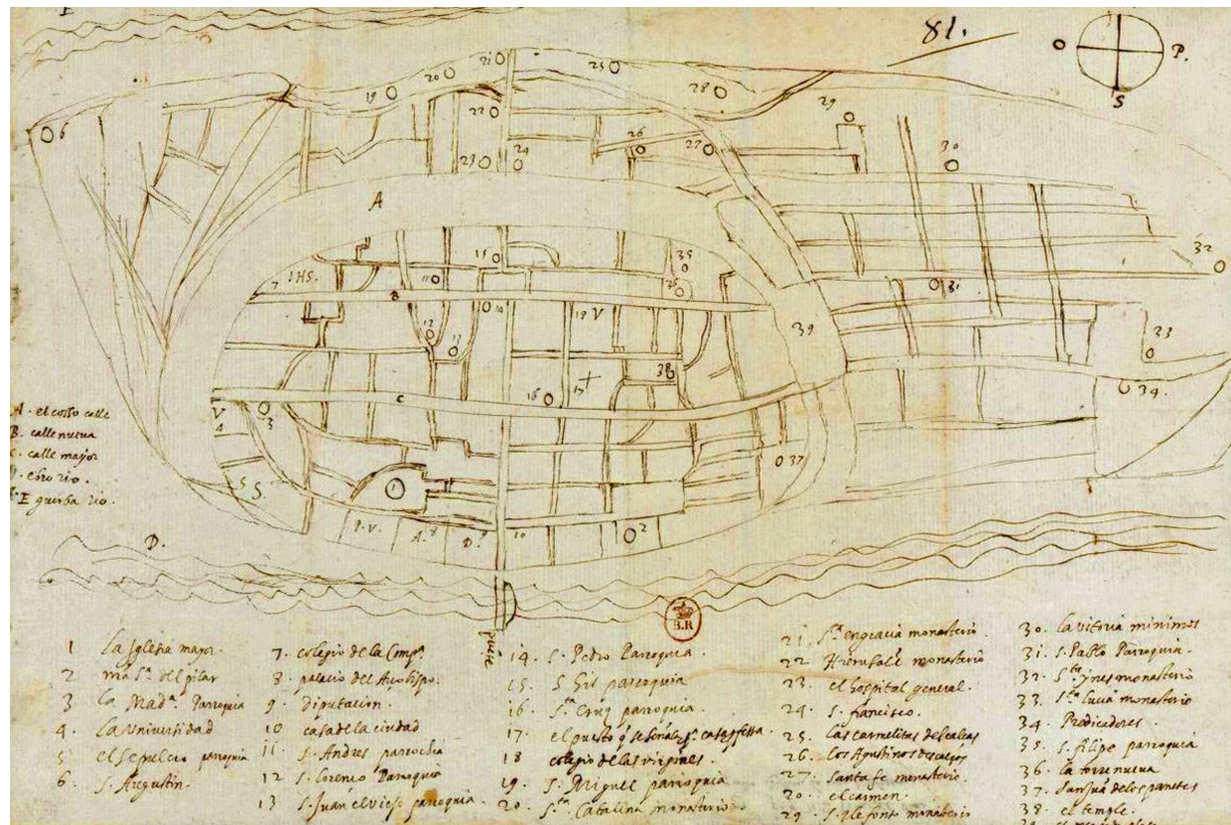 81.
O
P.
S
E
A
IHS.
B
C
V
S.
P.V.
A.
D.
D.
39
A. el cosso calle
B. calle nueva
C. calle major
D. ebro rio.
E guerba rio.
B.R
1 La Iglesia major.
2 mª Sª. del pilar
3 la Madª. Parroquia
4 La Universidad
5 el sepulcro parroquia
6 S. Augustin.
7. colegio de la Compª.
8. palacio del Arçobispo.
9. diputacion.
10 casa de la ciudad
11 S. Andres parrochia
12 S. Lorenço Parroquia
13 S. Juan el viejo parroquia.
14. S. Pedro Parroquia.
15 S Gil parroquia
16 Sta. Cruz parroquia.
17. el puesto q se señala pª. casa
18 colegio de las virgines.
19. S. Miguel parroquia
20. Sta. Catalina monasterio
21. Sta engracia monasterio.
22 monasterio
23. el hospital general.
24. S. francisco.
25 Las carmelitas descalças
26. los Agustinos descalços
27. Santa fe monasterio.
20. el carmen.
29. S. Ilefonso monasterio
30. la vitoria minimos
31. S. Pablo Parroquia.
32. Sta ynes monasterio
33 Sta Lucia monasterio
34. Predicadores.
35. S. filipe parroquia
36. la torre nueva
37. San juº de los panetes
38. el temple.